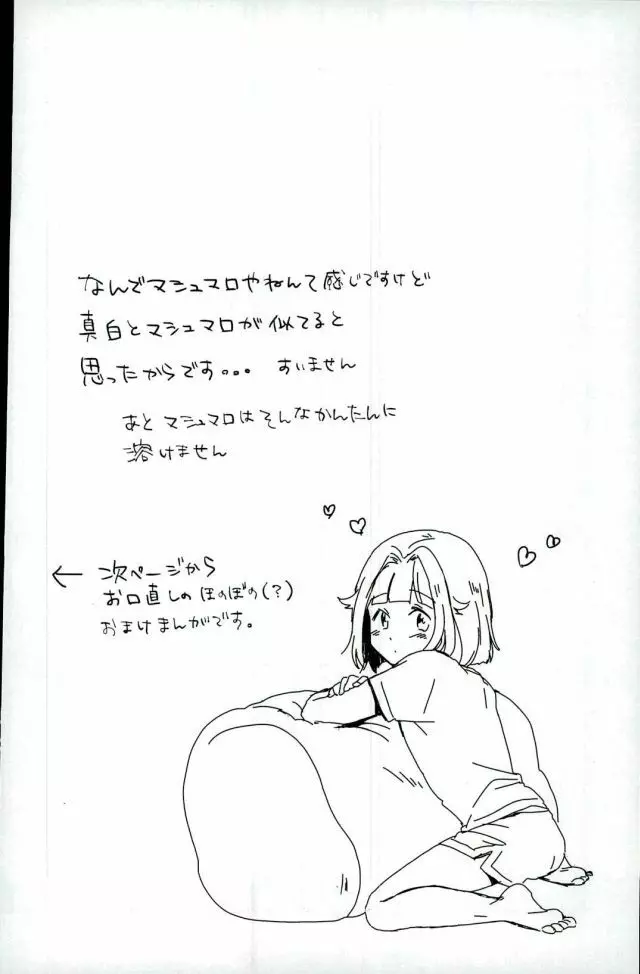 なんでマシュマロやねんて感じですけど
真白とマシュマロが似てると
思ったからです。。。 すいません
あと マシュマロはそんなかんたんに
溶けません
← 次ページから
お口直しの ほのぼの(?)
おまけまんがです。